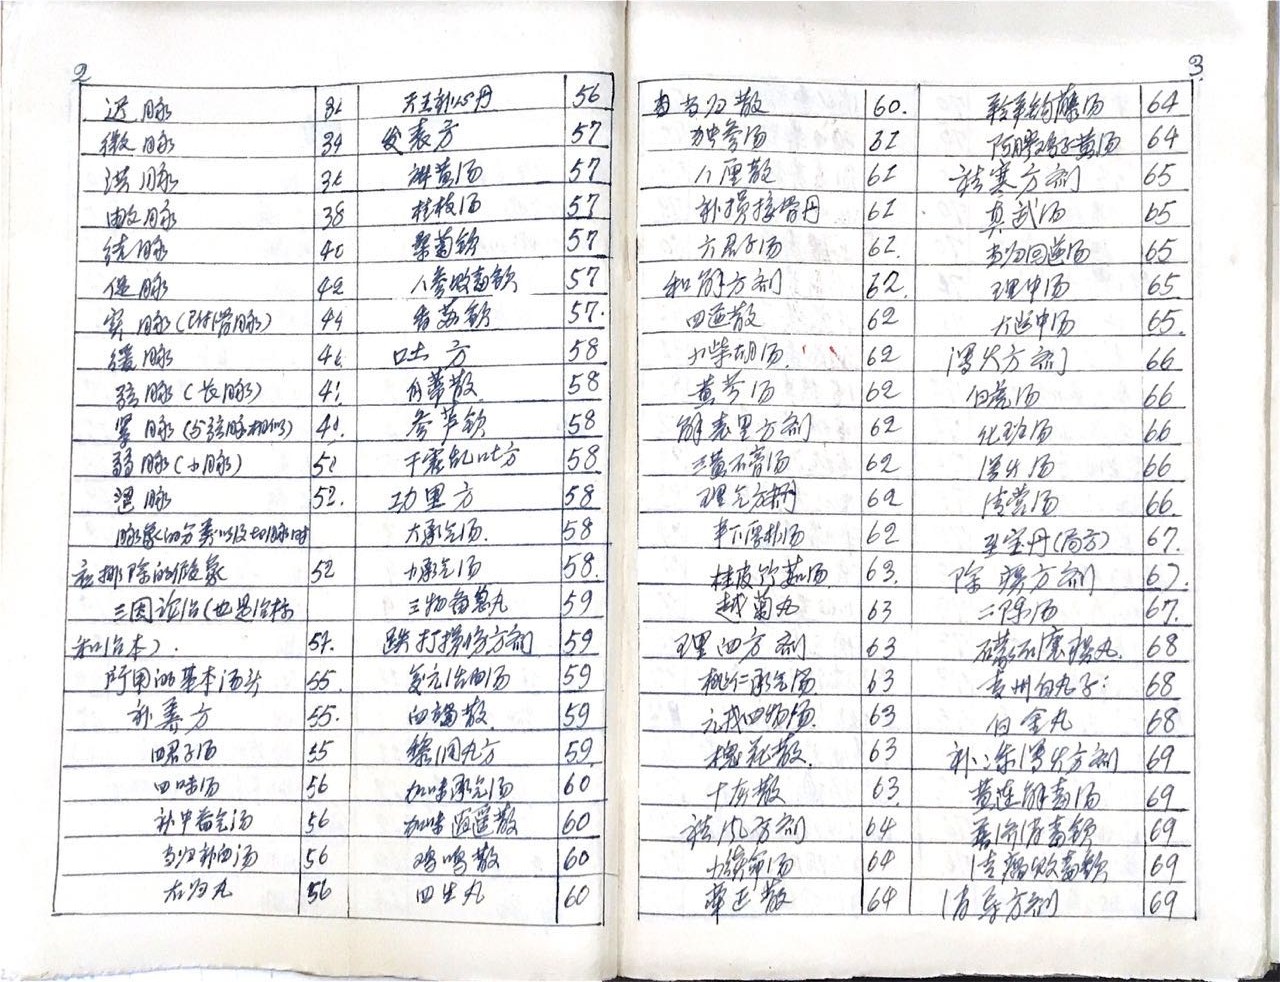 2
迟脉 32
微脉 34
洪脉 36
脉 38
脉 40
促脉 42
实脉(附滑脉) 44
缓脉 46
弦脉(长脉)
紧脉(与弦脉相似)
弱脉(小脉) 52
湿脉 52.
脉象的分类以及切脉时
应排除的假象 52
三因论治(也是治标
和治本).
所用的基本汤头 55.
补养方 55.
四君子汤 55
四味汤 56
补中益气汤 56
当归补血汤 56
右归丸 56
天王补心丹 56
发表方 57
麻黄汤 57
桂枝汤 57
桑菊饮 57
人参败毒饮 57
香苏饮 57.
吐方 58
瓜蒂散 58
参芦饮 58
干霍乱吐方 58
功里方 58
大承气汤. 58
小承气汤 58.
三物备急丸 59
跌打损伤方剂 59
复元活血汤 59
散 59
黎洞丸方 59.
加味承气汤 60
加味逍遥散 60
鸡鸣散 60
四生丸 60
3.
当归散 60.
独参汤 61
八厘散 61
补损接骨丹 61
六君子汤 62.
和解方剂 62.
四逆散 62
小柴胡汤. 62
黄芩汤 62
解表里方剂 62
三黄石膏汤 62
理气方剂 62
半下厚朴汤 62
桂皮竹茹汤. 63.
越菊丸 63
理血方剂 63
桃仁承气汤 63
元戎四物汤. 63
槐花散. 63
十灰散 63.
祛风方剂 64
小续命汤 64
牵正散 64
羚羊钩藤汤 64
阿胶鸡子黄汤 64
祛寒方剂 65
真武汤 65
当归回逆汤 65
理中汤 65
大建中汤 65.
泻火方剂 66
白虎汤 66
化斑汤 66
泻火汤 66
清营汤 66.
至宝丹(局方) 67.
除痰方剂 67.
二陈汤 67.
礞石滚痰丸. 68
青州白丸子: 68
白金丸 68
补二条泻火方剂 69
黄连解毒汤 69
普济消毒饮 69
清瘟败毒饮 69
消导方剂 69